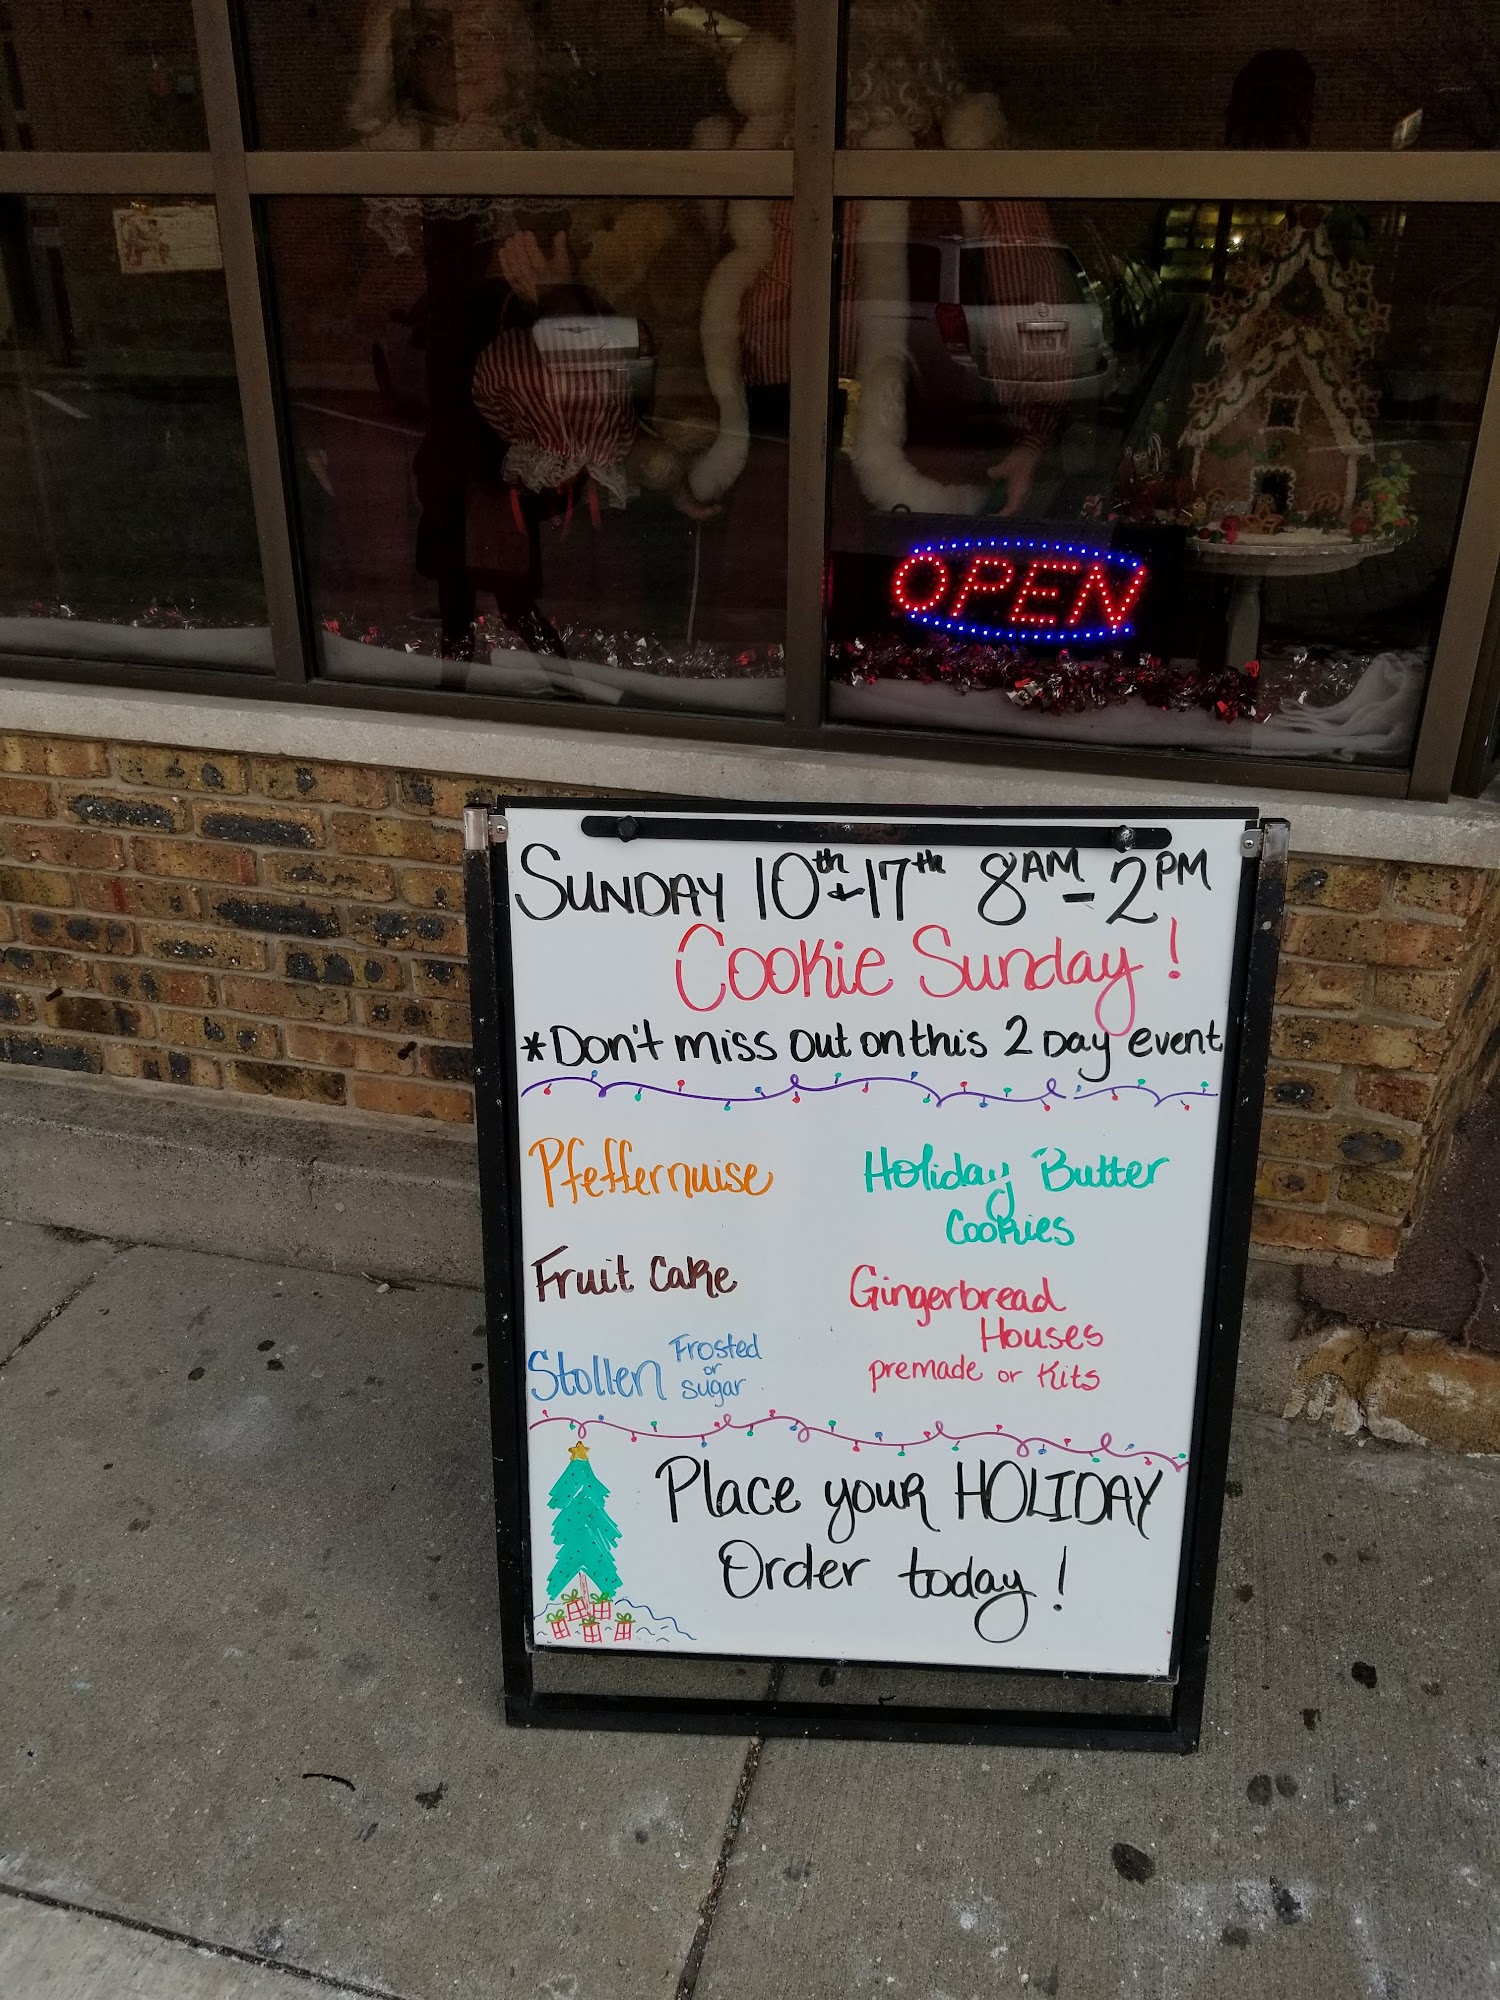 OPEN
SUNDAY 10th + 17th 8AM - 2PM
Cookie Sunday!
*Don't miss out on this 2 Day event
Pfeffernuise
Fruit Cake
Stollen Frosted
or
sugar
Holiday Butter
Cookies
Gingerbread
Houses
premade or Kits
Place your HOLIDAY
Order today!